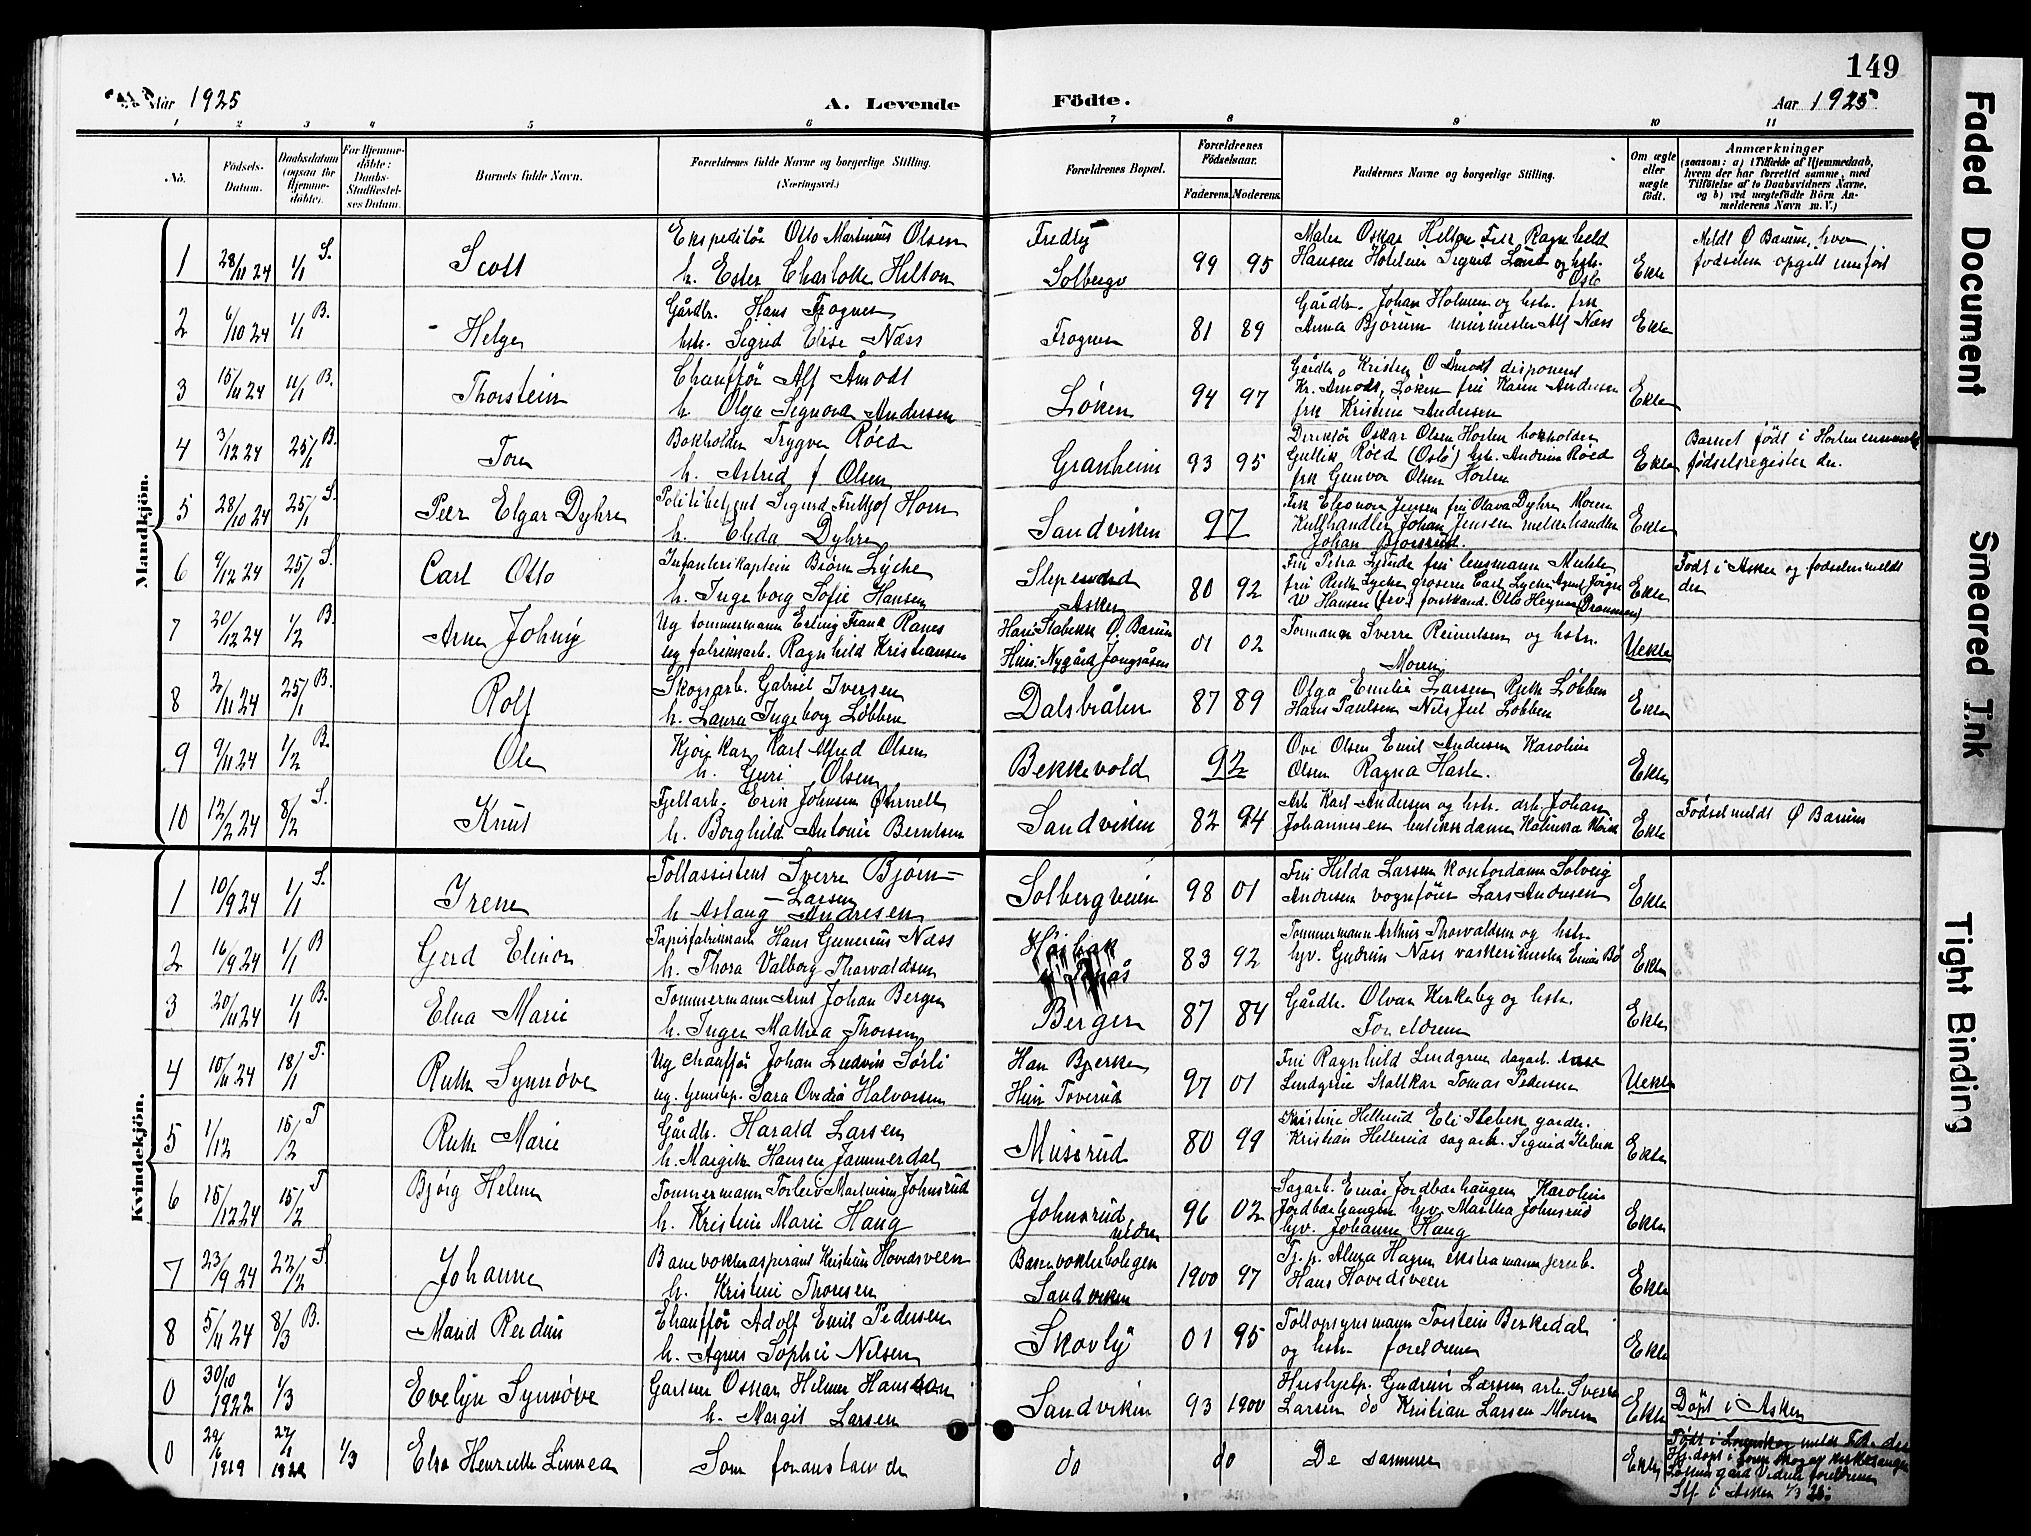 149
Aar 1925
A. Levende
Födte.
Aar 1925
1 2 3 4 5 6 7 8 9 10 11
No.
Födsels-
Datum.
Daabsdatum
(ogsaa for
Hjemme-
döbte).
For Hjemme-
döbte:
Daabs-
Stadfæstel-
ses Datum.
Barnets fulde Navn.
Forældrenes fulde Navne og borgerlige Stilling.
(Næringsvei.)
Forældrenes Bopæl.
Forældrenes
Födselsaar.
Faderens. Moderens.
Faddernes Navne og borgerlige Stilling.
Om ægte
eller
uægte
födt.
Anmærkninger
(saasom: a) i Tilfælde af Hjemmedaab,
hvem der har forrettet samme, med
Tilföielse af to Daabsvidners Navne,
og b) ved uægtefödte Börn An-
melderens Navn m. V.)
Mandkjön.
1 28/11 24 1/1 S. Scott
Ekspeditör Otto Martinius Olsen
h. Ester Charlotte Hilton
Fredly
Solbergv
99 95
Maler Oskar Hilton Ragnhild
Hansen Sigrid Lund og hstr.
Oslo
Ekte
Meldt Ø Bærum, hvor
fødselen opgitt
2 6/10 24 1/1 B. Helge
Gårdbr. Hans Frogner
hstr. Sigrid Elise Næss
Frogner
81 89
Gårdbr. Johan Holmen og hstr. frk
Anna Bjørum murmester Alf Næss
Ekte
3 15/11 24 11/1 B. Thorstein
Chaufför Alf Åmodt
h. Olga Signora Andersen
Løken
94 97
Gårdbr Kristen O Åmodt disponent
Kr. Åmodt, Løken fru Karen Andersen
frk Kristine Andersen
Ekte
4 3/12 24 25/1 B. Tore
Bokholder Trygve Röed
h. Astrid f Olsen
Granheim
93 95
Direktör Oskar Olsen Horten bokholder
Gullik Röed (Oslo) hstr. Andrine Röed
frk Gunvor Olsen Horten
Ekte
Barnet født i Horten
fødselsregister der.
5 28/10 24 25/1 S. Peer Elgar Dyhre
Politibetjent Sigurd Fritjof Horn
h. Elida Dyhre
Sandviken
97
Frk Eleonora Jensen fru Olava Dyhre Moren
Kullhandler Johan Jensen melkehandler
Johan Bjørsrud.
Ekte
6 9/12 24 25/1 S. Carl Otto
Infanterikaptein Bjørn Lyche
h. Ingeborg Sofie Hansen
Slepended
Asker
80 92
Fru Petra fru lensmann
fru Ruth Lyche grosserer Carl Lyche
W Hansen forstkand. Otto (Drammen)
Ekte
Født i Asker og fødselen meldt
der
7 20/12 24 1/2 B. Arne Johny
Ug tømmermann Erling Frank Ranes
ug fabrikarb. Ragnhild Kristiansen
Han: Stabekk Ø. Bærum
Hun: Nygård Jongsåsen
01 02
Formann Sverre Reinertsen og hstr.
Moren
Uekte
8 2/11 24 25/1 B. Rolf
Skogsarb. Gabriel Iversen
h. Laura Ingeborg Løbben
Dalsbråten
87 89
Olga Emilie Larsen Ruth Løbben
Hans Paulsen Nils Juel Løbben
Ekte
9 9/11 24 1/2 B. Ole
Kjørekar Karl Alfred Olsen
h. Guri Olsen
Bekkevold
92
Ove Olsen Emil Andersen Karoline
Olsen Ragna Hasle.
Ekte
10 12/2 24 8/2 S. Knut
Fjellarb. Erik Johnsen
h. Borghild Antonie Berntsen
Sandviken
82 94
Arb Karl Andersen og hstr. arb. Johan
Johannesen butiksdame
Ekte
Fødsel meldt Ø Bærum
Kvindekjön.
1 10/9 24 1/1 S. Irene
Tollassistent Sverre Bjørn-
-Larsen
h Aslaug Andresen
Solbergveien
98 01
Fru Hilda Larsen kontordame Solveig
Andresen vognfører Lars Andresen
Ekte
2 16/9 24 1/1 B Gerd Elinor
Papirfabrikkarb Hans Gunerius Næss
h. Thora Valborg Thorvaldsen
83 92
Tømmermann Arthur Thorvaldsen og hstr.
hjv. Gudrun Næss vaskerimester Einar Bø
Ekte
3 20/11 24 1/1 B. Elna Marie
Tømmermann Arnt Johan Berger
h. Inger Mathea Thoresen
Berger
87 84
Gårdbr. Olvar Kirkeby og hstr.
Foreldrene
Ekte
4 10/11 24 18/1 T. Ruth Synnøve
Ug chauffør Johan Ludvik Sørli
ug. tjenestep. Sara Ovedia Halvorsen
Han Bjerke
Hun Toverud
97 01
Fru Ragnhild Lindgren dagarb.
Lindgren Stallkar Tomas Pedersen
Uekte
5 1/12 15/2 T Ruth Marie
Gårdbr. Harald Larsen
h. Margith Hansen Jammerdal
Muserud
80 99
Kristine Hellerud Eli Stebekk gårdbr.
Kristian Hellerud sagarb. Sigurd Stebekk
Ekte
6 15/12 24 15/2 T Bjørg Helene
Tømmermann Torleiv Martinsen Johnsrud
h. Kristine Marie Haug
Johnsrud
nedre
96 02
Sagarb. Einar Jordbærhaugen Karoline
Jordbærhaugen hjv. Martha Johnsrud
hjv. Johanne Haug
Ekte
7 23/9 24 22/2 S. Johanne
Banevokteraspirant Kristian Hovedsveen
h. Kristine Thoresen
Banevokterboligen
Sandviken
1900 97
Tj.p. Alma Hagen ekstramann jernb.
Hans Hovedsveen
Ekte
8 5/11 24 8/3 B. Maud Reidun
Chauffør Adolf Emil Pedersen
h. Agnes Sophie Nilsen
Skovly
01 95
Tollopsynsmann Torstein Birkedal
og hstr foreldrene
Ekte
0 30/10 1922 1/3 Evelyn Synnøve
Gartner Oskar Helmer Hansson
h. Margit Larsen
Sandviken
93 1900
Hushjelp. Gudrun Larsen arb. Sverre
Larsen do Kristian Larsen Moren
Ekte
Døpt i Asker
0 29/6 1919 1/3 Elsa Henriette Linnea
Som foranstående
do
do
De samme
Ekte
Stf i Asker 1/3 25.
Faded Document
Smeared Ink
Tight Binding